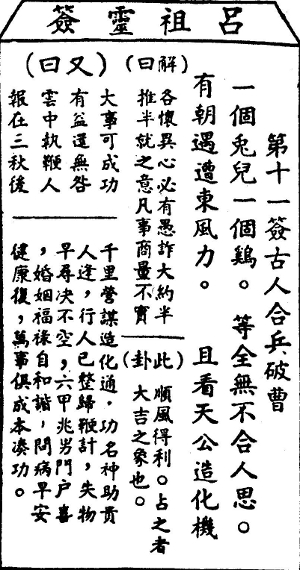 呂祖靈簽
第十一簽古人合兵破曹
一個兔兒一個鷄。等全無不合人思。
有朝遇遭東風力。且看天公造化機
(解曰)
各懷異心必有愚詐大約半
推半就之意凡事商量不實
(此卦)
順風得利。占之者
大吉之象也。
(又曰)
大事可成功
有益還無咎
雲中執鞭人
報在三秋後
千里營謀造化通,功名神助貢
人逢,行人已整歸鞭計,失物
早尋決不空,六甲兆男門户喜
,婚姻福祿自和諧,問病早安
健康復,萬事俱成本湊功。